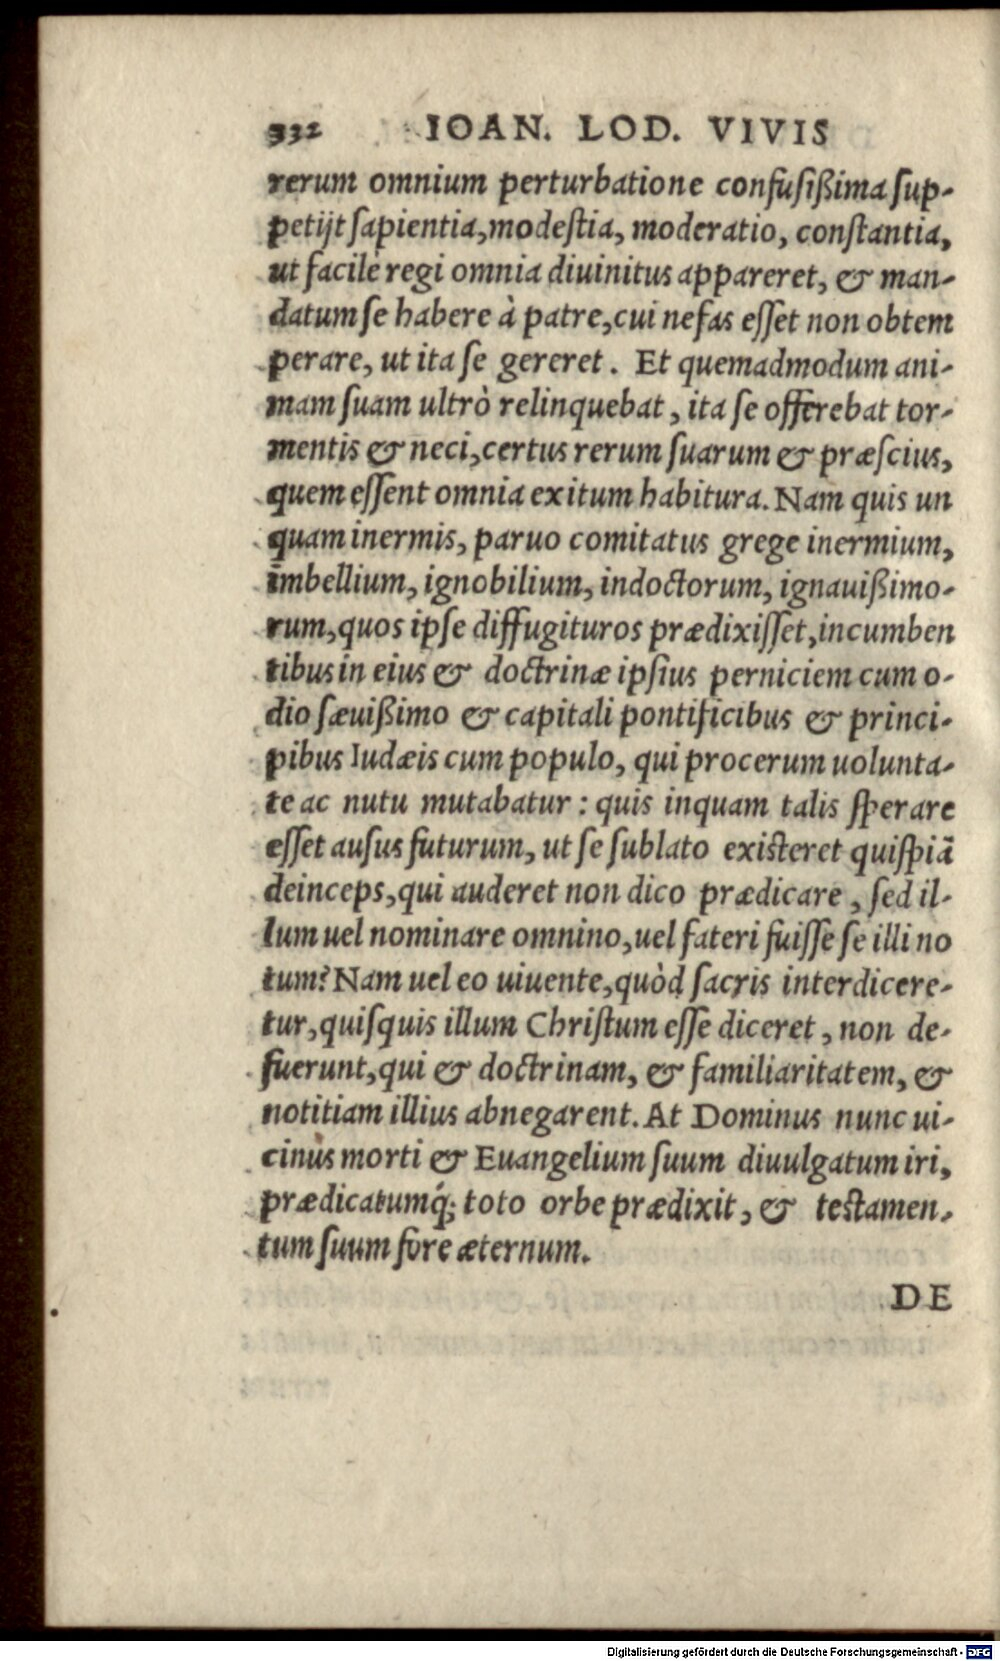 332 IOAN. LOD. VIVIS
rerum omnium perturbatione confusißima sup-
petijt sapientia, modestia, moderatio, constantia,
ut facilè regi omnia diuinitus appareret, & man-
datum se habere à patre, cui nefas esset non obtem
perare, ut ita se gereret. Et quemadmodum ani-
mam suam ultrò relinquebat, ita se offerebat tor-
mentis & neci, certus rerum suarum & præscius,
quem essent omnia exitum habitura. Nam quis un
quam inermis, paruo comitatus grege inermium,
imbellium, ignobilium, indoctorum, ignauißimo-
rum, quos ipse diffugituros prædixisset, incumben
tibus in eius & doctrinæ ipsius perniciem cum o-
dio sæuißimo & capitali pontificibus & princi-
pibus Iudæis cum populo, qui procerum uolunta-
te ac nutu mutabatur: quis inquam talis sperare
esset ausus futurum, ut se sublato existeret quispiã
deinceps, qui auderet non dico prædicare, sed il-
lum uel nominare omnino, uel fateri fuisse se illi no
tum? Nam uel eo uiuente, quòd sacris interdicere-
tur, quisquis illum Christum esse diceret, non de-
fuerunt, qui & doctrinam, & familiaritatem, &
notitiam illius abnegarent. At Dominus nunc ui-
cinus morti & Euangelium suum diuulgatum iri,
prædicatumq́; toto orbe prædixit, & testamen-
tum suum fore æternum.
DE
Digitalisierung gefördert durch die Deutsche Forschungsgemeinschaft - DFG